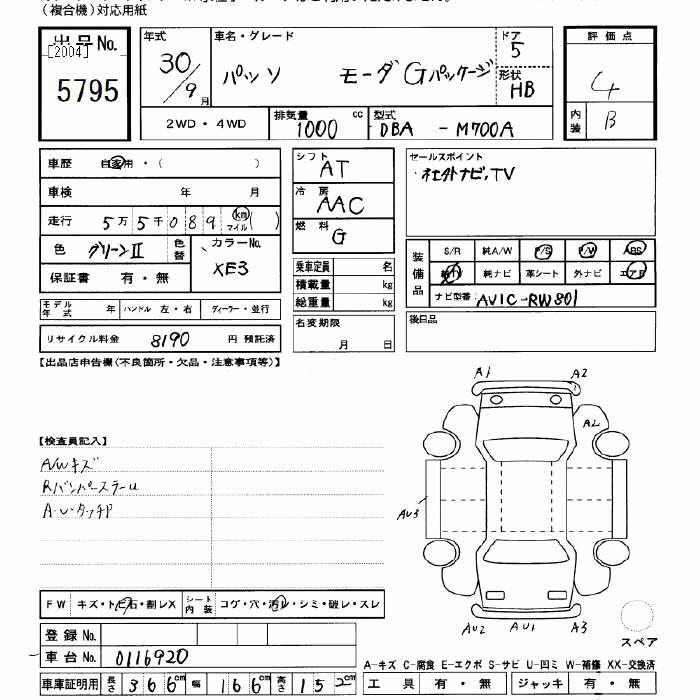 （複合機）対応用紙
出品No.
[2004]
5795
年式
30/9月
車名・グレード
パッソ モーダGパッケージ
ドア
5
形状
HB
評価点
4
内装
B
2WD・4WD
排気量
1000cc
型式
DBA － M700A
車歴 自家用・（ ）
車検 年 月
走行 5万5千089 km マイル（ ）
色 グリーンⅡ 色替
カラーNo.
XE3
保証書 有・無
モデル年式 年 ハンドル 左・右 ディーラー・並行
リサイクル料金 8190 円 預託済
シフト
AT
冷房
AAC
燃料
G
乗車定員 名
積載量 kg
総重量 kg
名変期限
月 日
セールスポイント
・社外ナビ,TV
装備品
S/R 純A/W P/S P/W ABS
純TV 純ナビ 革シート 外ナビ エアB
ナビ型番 AVIC-RW801
後日品
【出品店申告欄（不良箇所・欠品・注意事項等）】
【検査員記入】
A/Wキズ
A・U・タッチP
A1 A2
AL
AU3
AU2 AU1 A3
スペア
FW キズ・トビ石・割レX シート内装 コゲ・穴・汚レ・シミ・破レ・スレ
登録No.
車台No. 0116920
車庫証明用 長さ 366cm 幅 166cm 高さ 152cm
A-キズ C-腐食 E-エクボ S-サビ U-凹ミ W-補修 XX-交換済
工具 有・無 ジャッキ 有・無